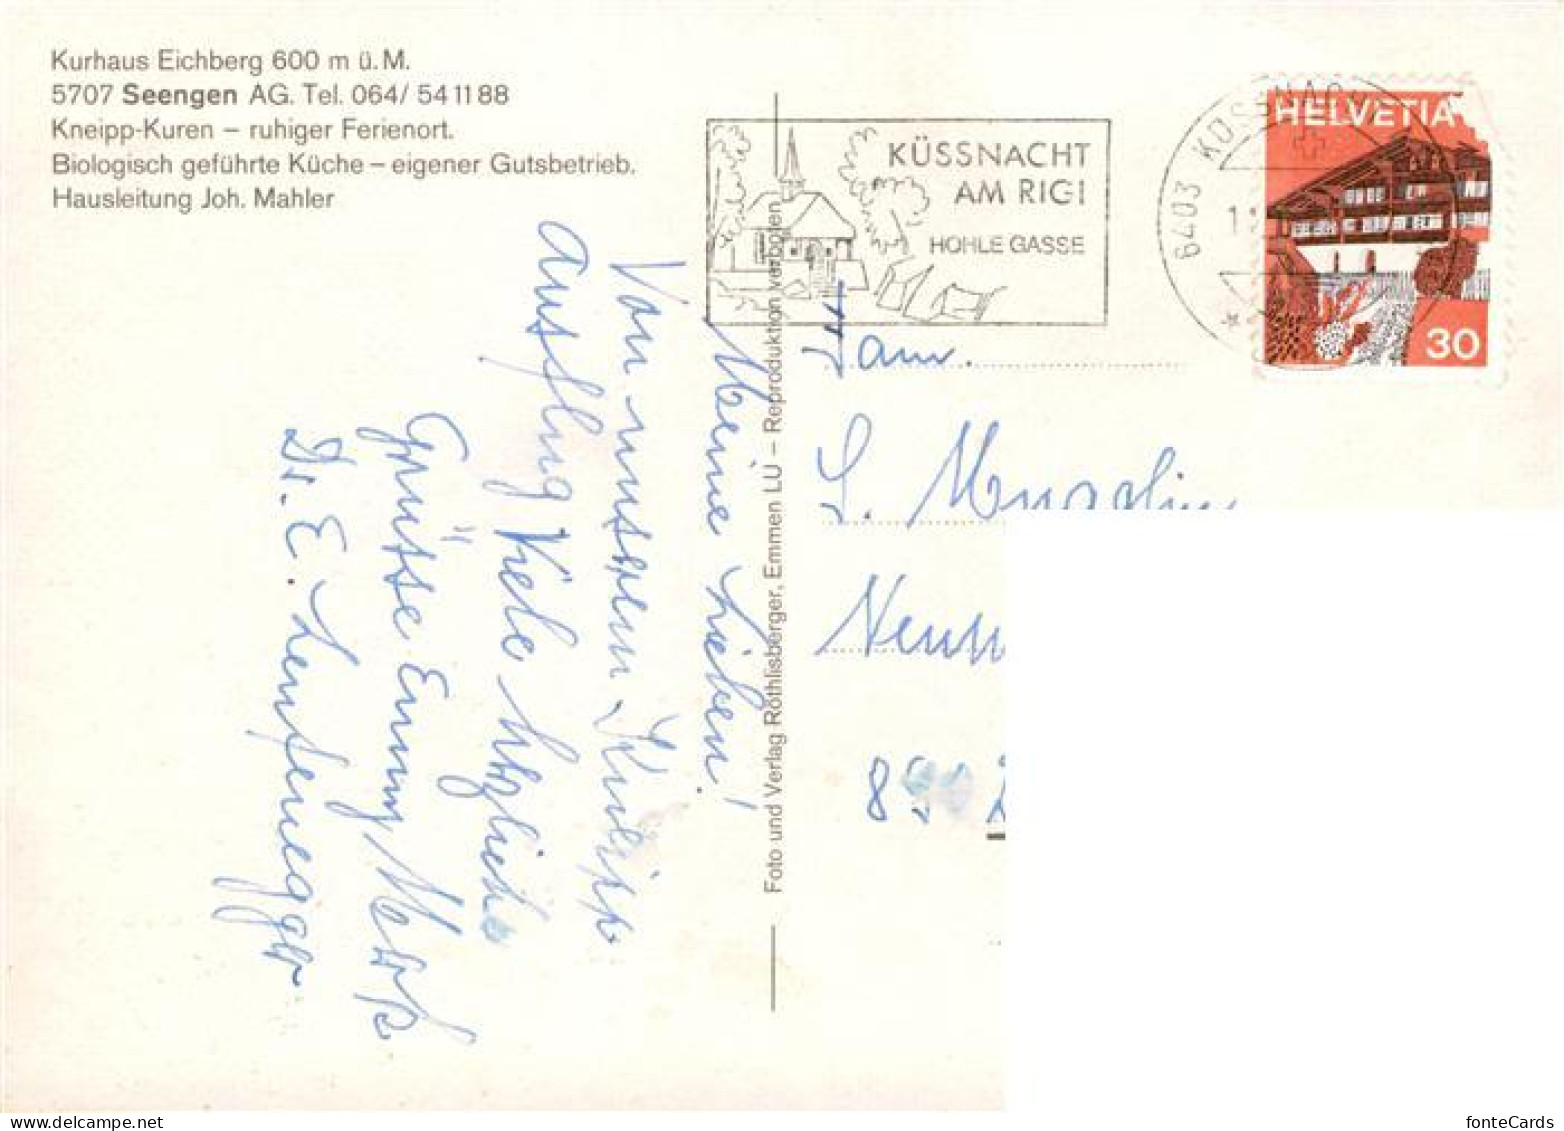 Kurhaus Eichberg 600 m ü. M.
5707 Seengen AG. Tel. 064/ 54 11 88
Kneipp-Kuren – ruhiger Ferienort.
Biologisch geführte Küche – eigener Gutsbetrieb.
Hausleitung Joh. Mahler
KÜSSNACHT
AM RIGI
HOHLE GASSE
6403 KÜSSNACHT
HELVETIA
30
Foto und Verlag Röthlisberger, Emmen LU – Reproduktion verboten
Meine Lieben!
Von unserem
Ausflug Viele herzliche
Grüsse Emmy
Dr. E. Lenzenegger
Fam.
fonteCards